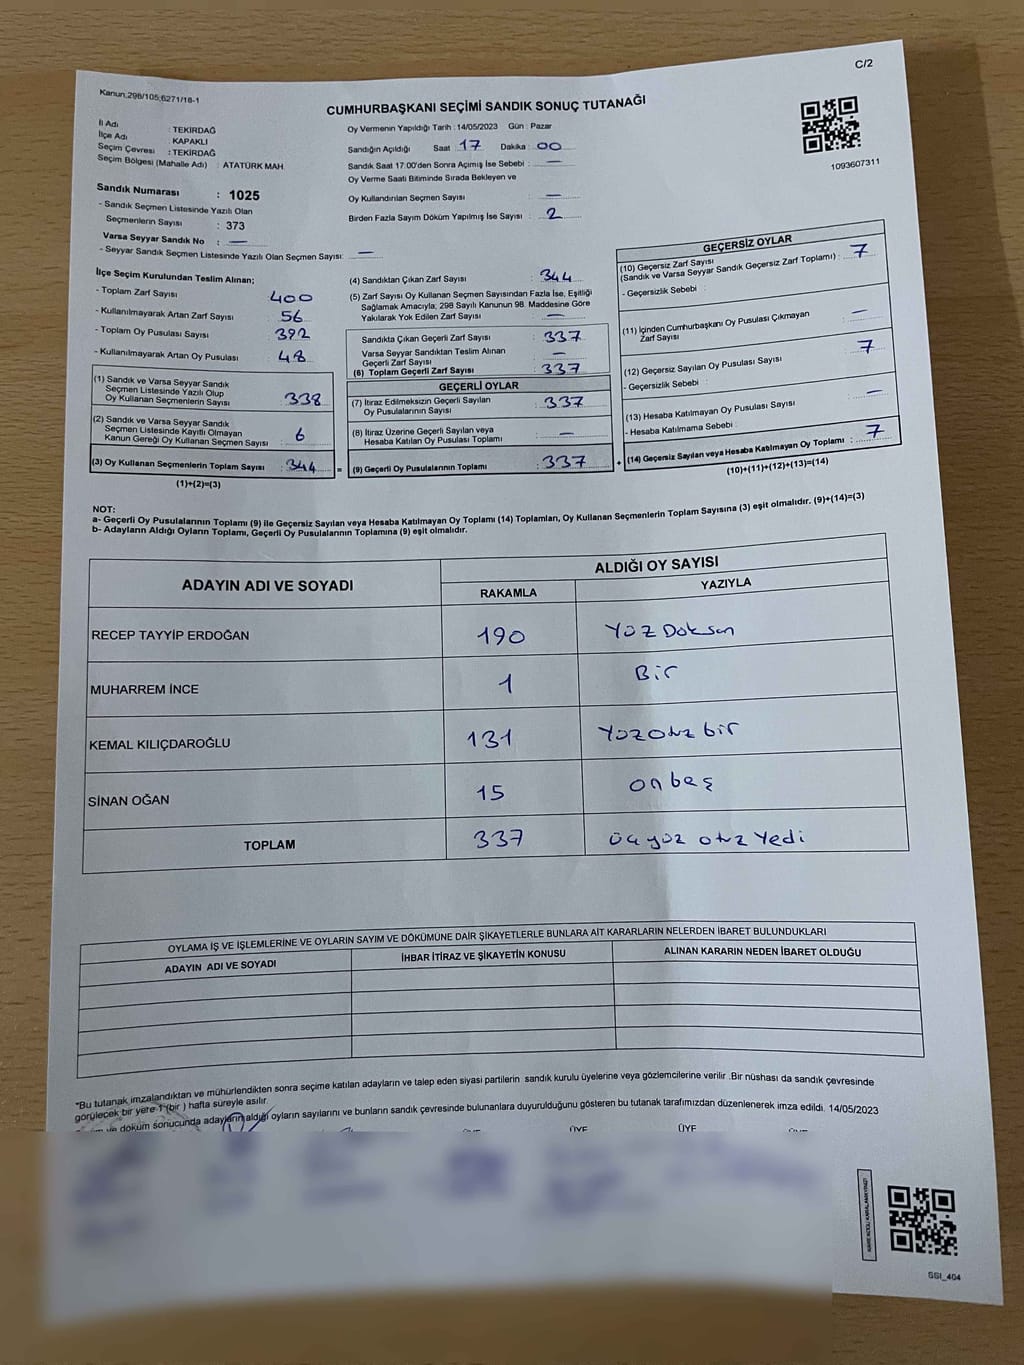 C/2
Kanun:298/105;6271/18-1
CUMHURBAŞKANI SEÇİMİ SANDIK SONUÇ TUTANAĞI
1093607311
İl Adı : TEKİRDAĞ
İlçe Adı : KAPAKLI
Seçim Çevresi : TEKİRDAĞ
Seçim Bölgesi (Mahalle Adı) : ATATÜRK MAH.
Sandık Numarası : 1025
- Sandık Seçmen Listesinde Yazılı Olan
Seçmenlerin Sayısı : 373
Varsa Seyyar Sandık No : —
- Seyyar Sandık Seçmen Listesinde Yazılı Olan Seçmen Sayısı: —
Oy Vermenin Yapıldığı Tarih : 14/05/2023 Gün : Pazar
Sandığın Açıldığı Saat : 17 Dakika : 00
Sandık Saat 17:00'den Sonra Açımış İse Sebebi : —
Oy Verme Saati Bitiminde Sırada Bekleyen ve
Oy Kullandırılan Seçmen Sayısı : —
Birden Fazla Sayım Döküm Yapılmış İse Sayısı : 2
İlçe Seçim Kurulundan Teslim Alınan;
- Toplam Zarf Sayısı : 400
- Kullanılmayarak Artan Zarf Sayısı : 56
- Toplam Oy Pusulası Sayısı : 392
- Kullanılmayarak Artan Oy Pusulası : 48
(1) Sandık ve Varsa Seyyar Sandık
Seçmen Listesinde Yazılı Olup
Oy Kullanan Seçmenlerin Sayısı : 338
(2) Sandık ve Varsa Seyyar Sandık
Seçmen Listesinde Kayıtlı Olmayan
Kanun Gereği Oy Kullanan Seçmen Sayısı : 6
(3) Oy Kullanan Seçmenlerin Toplam Sayısı : 344 =
(1)+(2)=(3)
(4) Sandıktan Çıkan Zarf Sayısı : 344
(5) Zarf Sayısı Oy Kullanan Seçmen Sayısından Fazla İse, Eşitliği
Sağlamak Amacıyla; 298 Sayılı Kanunun 98. Maddesine Göre
Yakılarak Yok Edilen Zarf Sayısı : —
Sandıkta Çıkan Geçerli Zarf Sayısı : 337
Varsa Seyyar Sandıktan Teslim Alınan
Geçerli Zarf Sayısı : —
(6) Toplam Geçerli Zarf Sayısı : 337
GEÇERLİ OYLAR
(7) İtiraz Edilmeksizin Geçerli Sayılan
Oy Pusulalarının Sayısı : 337
(8) İtiraz Üzerine Geçerli Sayılan veya
Hesaba Katılan Oy Pusulası Toplamı : —
(9) Geçerli Oy Pusulalarının Toplamı : 337 +
GEÇERSİZ OYLAR
(10) Geçersiz Zarf Sayısı
(Sandık ve Varsa Seyyar Sandık Geçersiz Zarf Toplamı) : 7
- Geçersizlik Sebebi :
(11) İçinden Cumhurbaşkanı Oy Pusulası Çıkmayan
Zarf Sayısı : —
(12) Geçersiz Sayılan Oy Pusulası Sayısı : 7
- Geçersizlik Sebebi :
(13) Hesaba Katılmayan Oy Pusulası Sayısı : —
- Hesaba Katılmama Sebebi :
(14) Geçersiz Sayılan veya Hesaba Katılmayan Oy Toplamı : 7
(10)+(11)+(12)+(13)=(14)
NOT:
a- Geçerli Oy Pusulalarının Toplamı (9) ile Geçersiz Sayılan veya Hesaba Katılmayan Oy Toplamı (14) Toplamları, Oy Kullanan Seçmenlerin Toplam Sayısına (3) eşit olmalıdır. (9)+(14)=(3)
b- Adayların Aldığı Oyların Toplamı, Geçerli Oy Pusulalarının Toplamına (9) eşit olmalıdır.
ADAYIN ADI VE SOYADI
ALDIĞI OY SAYISI
RAKAMLA YAZIYLA
RECEP TAYYİP ERDOĞAN 190 Yüz Doksan
MUHARREM İNCE 1 Bir
KEMAL KILIÇDAROĞLU 131 Yüz otuz bir
SİNAN OĞAN 15 on beş
TOPLAM 337 üç yüz otuz Yedi
OYLAMA İŞ VE İŞLEMLERİNE VE OYLARIN SAYIM VE DÖKÜMÜNE DAİR ŞİKAYETLERLE BUNLARA AİT KARARLARIN NELERDEN İBARET BULUNDUKLARI
ADAYIN ADI VE SOYADI İHBAR İTİRAZ VE ŞİKAYETİN KONUSU ALINAN KARARIN NEDEN İBARET OLDUĞU
"Bu tutanak imzalandıktan ve mühürlendikten sonra seçime katılan adayların ve talep eden siyasi partilerin sandık kurulu üyelerine veya gözlemcilerine verilir .Bir nüshası da sandık çevresinde
görülecek bir yere 1 (bir ) hafta süreyle asılır.
ve döküm sonucunda adayların aldığı oyların sayılarını ve bunların sandık çevresinde bulunanlara duyurulduğunu gösteren bu tutanak tarafımızdan düzenlenerek imza edildi. 14/05/2023
ÜYE ÜYE
SSI_404